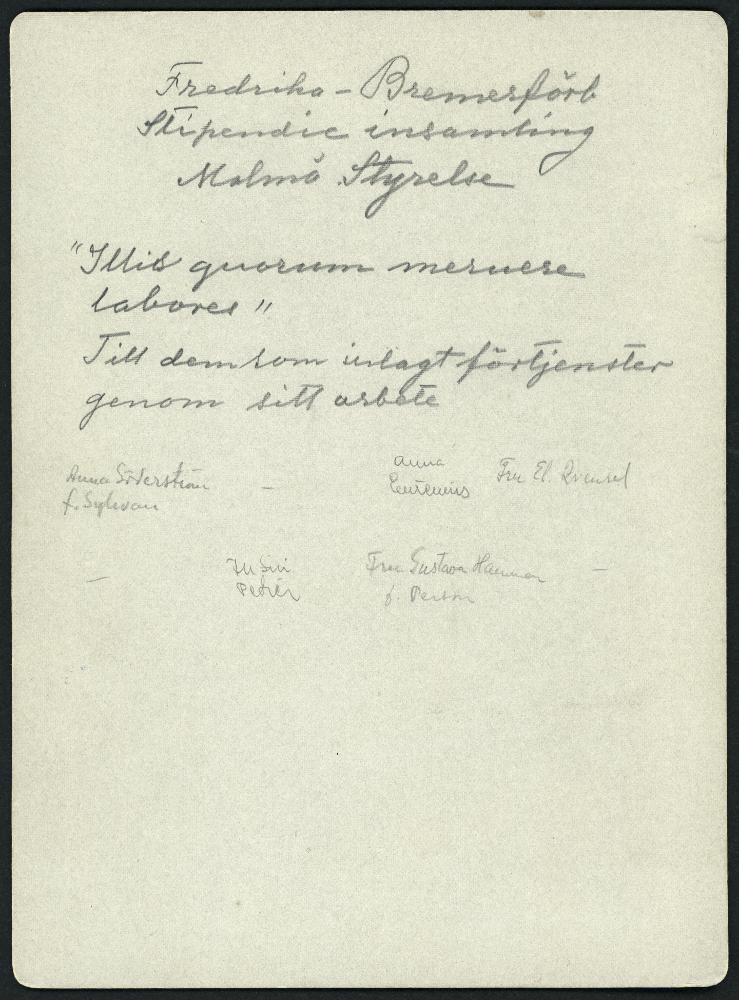 Fredrika - Bremerförb
Stipendie insamling
Malmö Styrelse
"Illis quorum meruere
labores"
Till dem som inlagt förtjenster
genom sitt arbete
Anna Söderström - Anna Fru El. Quensel
f. Sylvan
- Fru Gustava -
f. Person